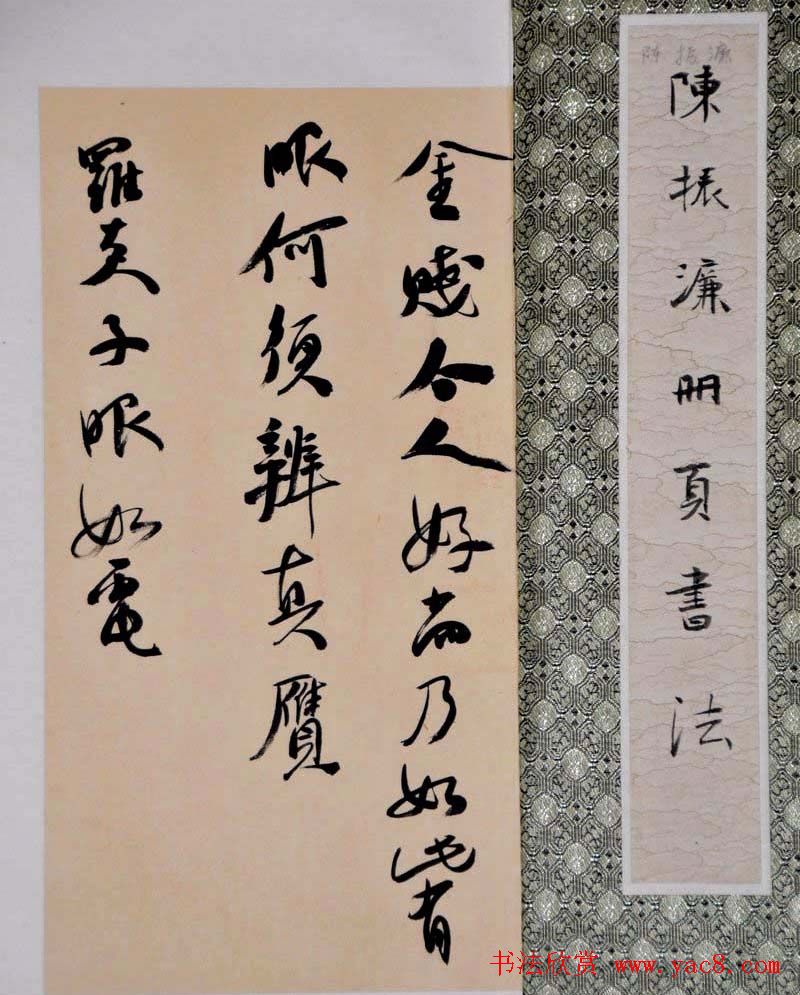 陳振濂
陳振濂册頁書法
金賤今人好尚乃如此有
眼何須辨真贋
羅夫子眼如電
书法欣赏 www.yac8.com